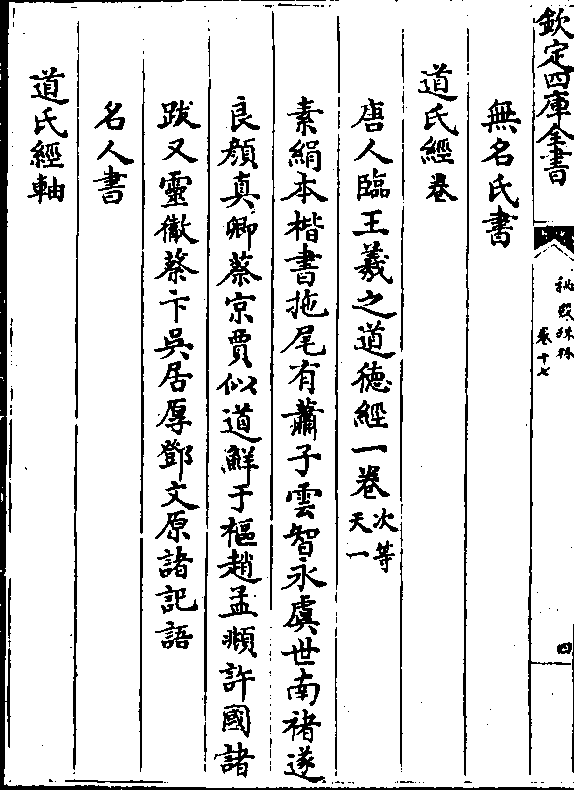 欽定四庫全書
秘殿珠林
卷十七
四
無名氏書
道氏經卷
唐人臨王羲之道德經一卷次等天一
素絹本楷書拖尾有蕭子雲智永虞世南褚遂
良顔真卿蔡京賈似道鮮于樞趙孟頫許國諸
跋又靈徹蔡卞吳居厚鄧文原諸記語
名人書
道氏經軸